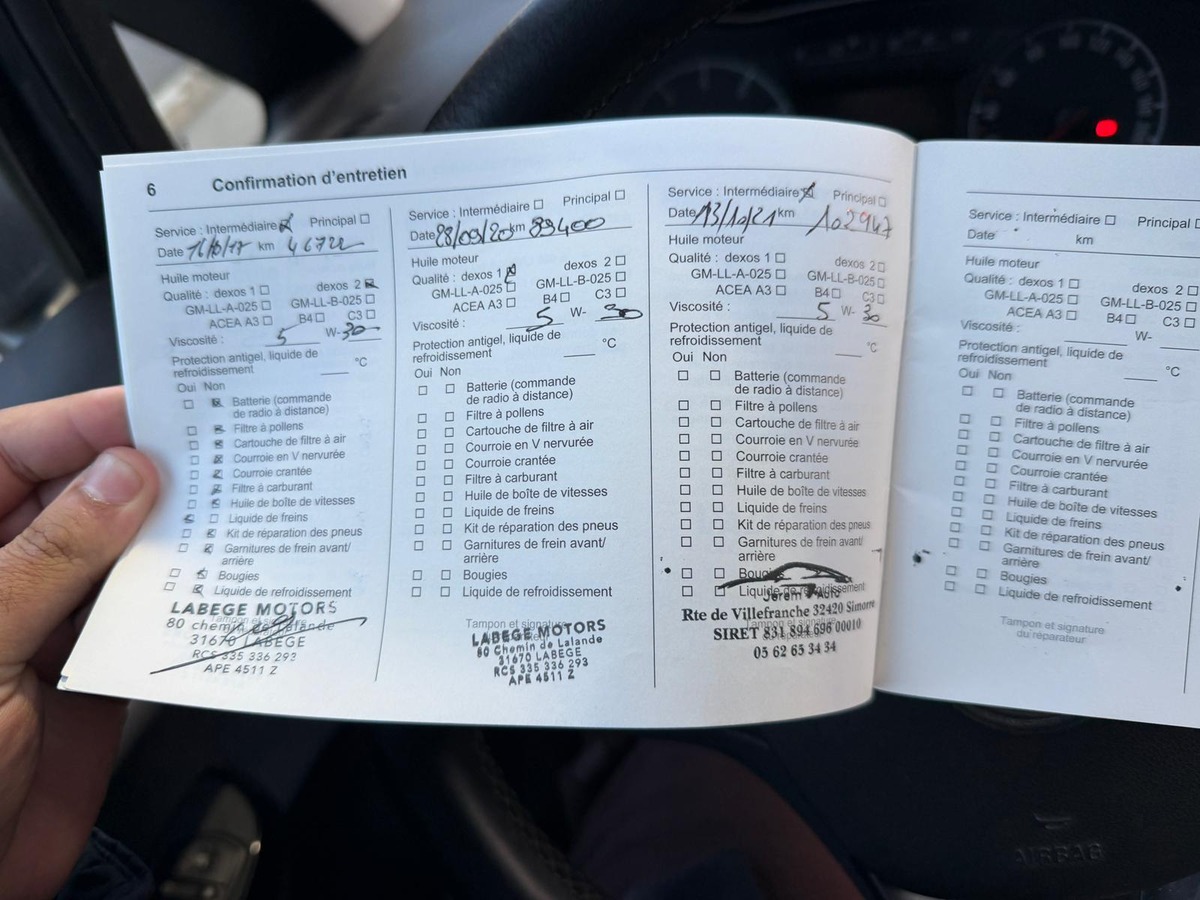 6 Confirmation d'entretien
Service : Intermédiaire Principal
Date km 46722
Huile moteur
Qualité : dexos 1 dexos 2
GM-LL-A-025 GM-LL-B-025
ACEA A3 B4 C3
Viscosité : 5 W- 30
Protection antigel, liquide de
refroidissement °C
Oui Non
Batterie (commande
de radio à distance)
Filtre à pollens
Cartouche de filtre à air
Courroie en V nervurée
Courroie crantée
Filtre à carburant
Huile de boîte de vitesses
Liquide de freins
Kit de réparation des pneus
Garnitures de frein avant/
arrière
Bougies
Liquide de refroidissement
LABEGE MOTORS
Tampon et signature
80 chemin de Lalande
31670 LABEGE
RCS 335 336 293
APE 4511 Z
Service : Intermédiaire Principal
Date 28/09/20 km 89400
Huile moteur
Qualité : dexos 1 dexos 2
GM-LL-A-025 GM-LL-B-025
ACEA A3 B4 C3
Viscosité : 5 W- 30
Protection antigel, liquide de
refroidissement °C
Oui Non
Batterie (commande
de radio à distance)
Filtre à pollens
Cartouche de filtre à air
Courroie en V nervurée
Courroie crantée
Filtre à carburant
Huile de boîte de vitesses
Liquide de freins
Kit de réparation des pneus
Garnitures de frein avant/
arrière
Bougies
Liquide de refroidissement
Tampon et signature
LABEGE MOTORS
80 Chemin de Lalande
31670 LABEGE
RCS 335 336 293
APE 4511 Z
Service : Intermédiaire Principal
Date 13/10/21 km 102947
Huile moteur
Qualité : dexos 1 dexos 2
GM-LL-A-025 GM-LL-B-025
ACEA A3 B4 C3
Viscosité : 5 W- 30
Protection antigel, liquide de
refroidissement °C
Oui Non
Batterie (commande
de radio à distance)
Filtre à pollens
Cartouche de filtre à air
Courroie en V nervurée
Courroie crantée
Filtre à carburant
Huile de boîte de vitesses
Liquide de freins
Kit de réparation des pneus
Garnitures de frein avant/
arrière
Bougies
Liquide de refroidissement
Jerem Auto
Rte de Villefranche 32420 Simorre
Tampon et signature
SIRET 831 894 696 00010
05 62 65 34 34
Service : Intermédiaire Principal
Date km
Huile moteur
Qualité : dexos 1 dexos 2
GM-LL-A-025 GM-LL-B-025
ACEA A3 B4 C3
Viscosité : W-
Protection antigel, liquide de
refroidissement °C
Oui Non
Batterie (commande
de radio à distance)
Filtre à pollens
Cartouche de filtre à air
Courroie en V nervurée
Courroie crantée
Filtre à carburant
Huile de boîte de vitesses
Liquide de freins
Kit de réparation des pneus
Garnitures de frein avant/
arrière
Bougies
Liquide de refroidissement
Tampon et signature
du réparateur
AIRBAG